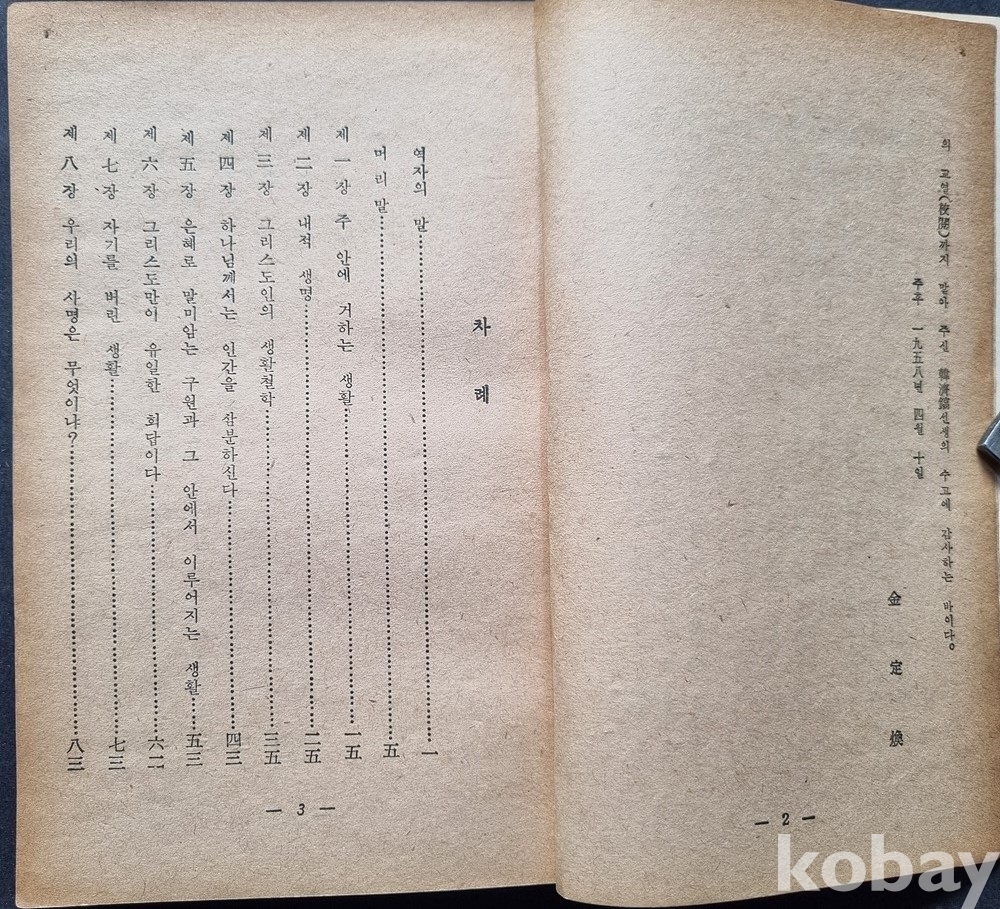 의 교열(校閱)까지 맡아 주신 韓濟鎬선생의 수고에 감사하는 바이다。
주후 一九五八년 四월 十일
金定煥
— 2 —
차례
역자의 말……一
머리말……五
제一장 주 안에 거하는 생활……一五
제二장 내적 생명……二五
제三장 그리스도인의 생활철학……三五
제四장 하나님께서는 인간을 삼분하신다……四三
제五장 은혜로 말미암는 구원과 그 안에서 이루어지는 생활……五三
제六장 그리스도만이 유일한 회답이다……六一
제七장 자기를 버린 생활……七三
제八장 우리의 사명은 무엇이냐?……八三
— 3 —
kobay